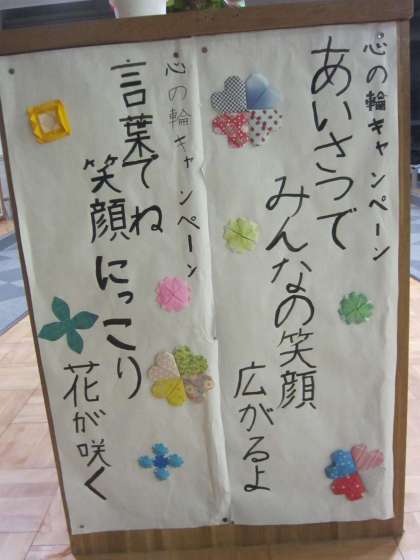 心の輪キャンペーン
あいさつで
みんなの笑顔
広がるよ
心の輪キャンペーン
言葉でね
笑顔にっこり
花が咲く